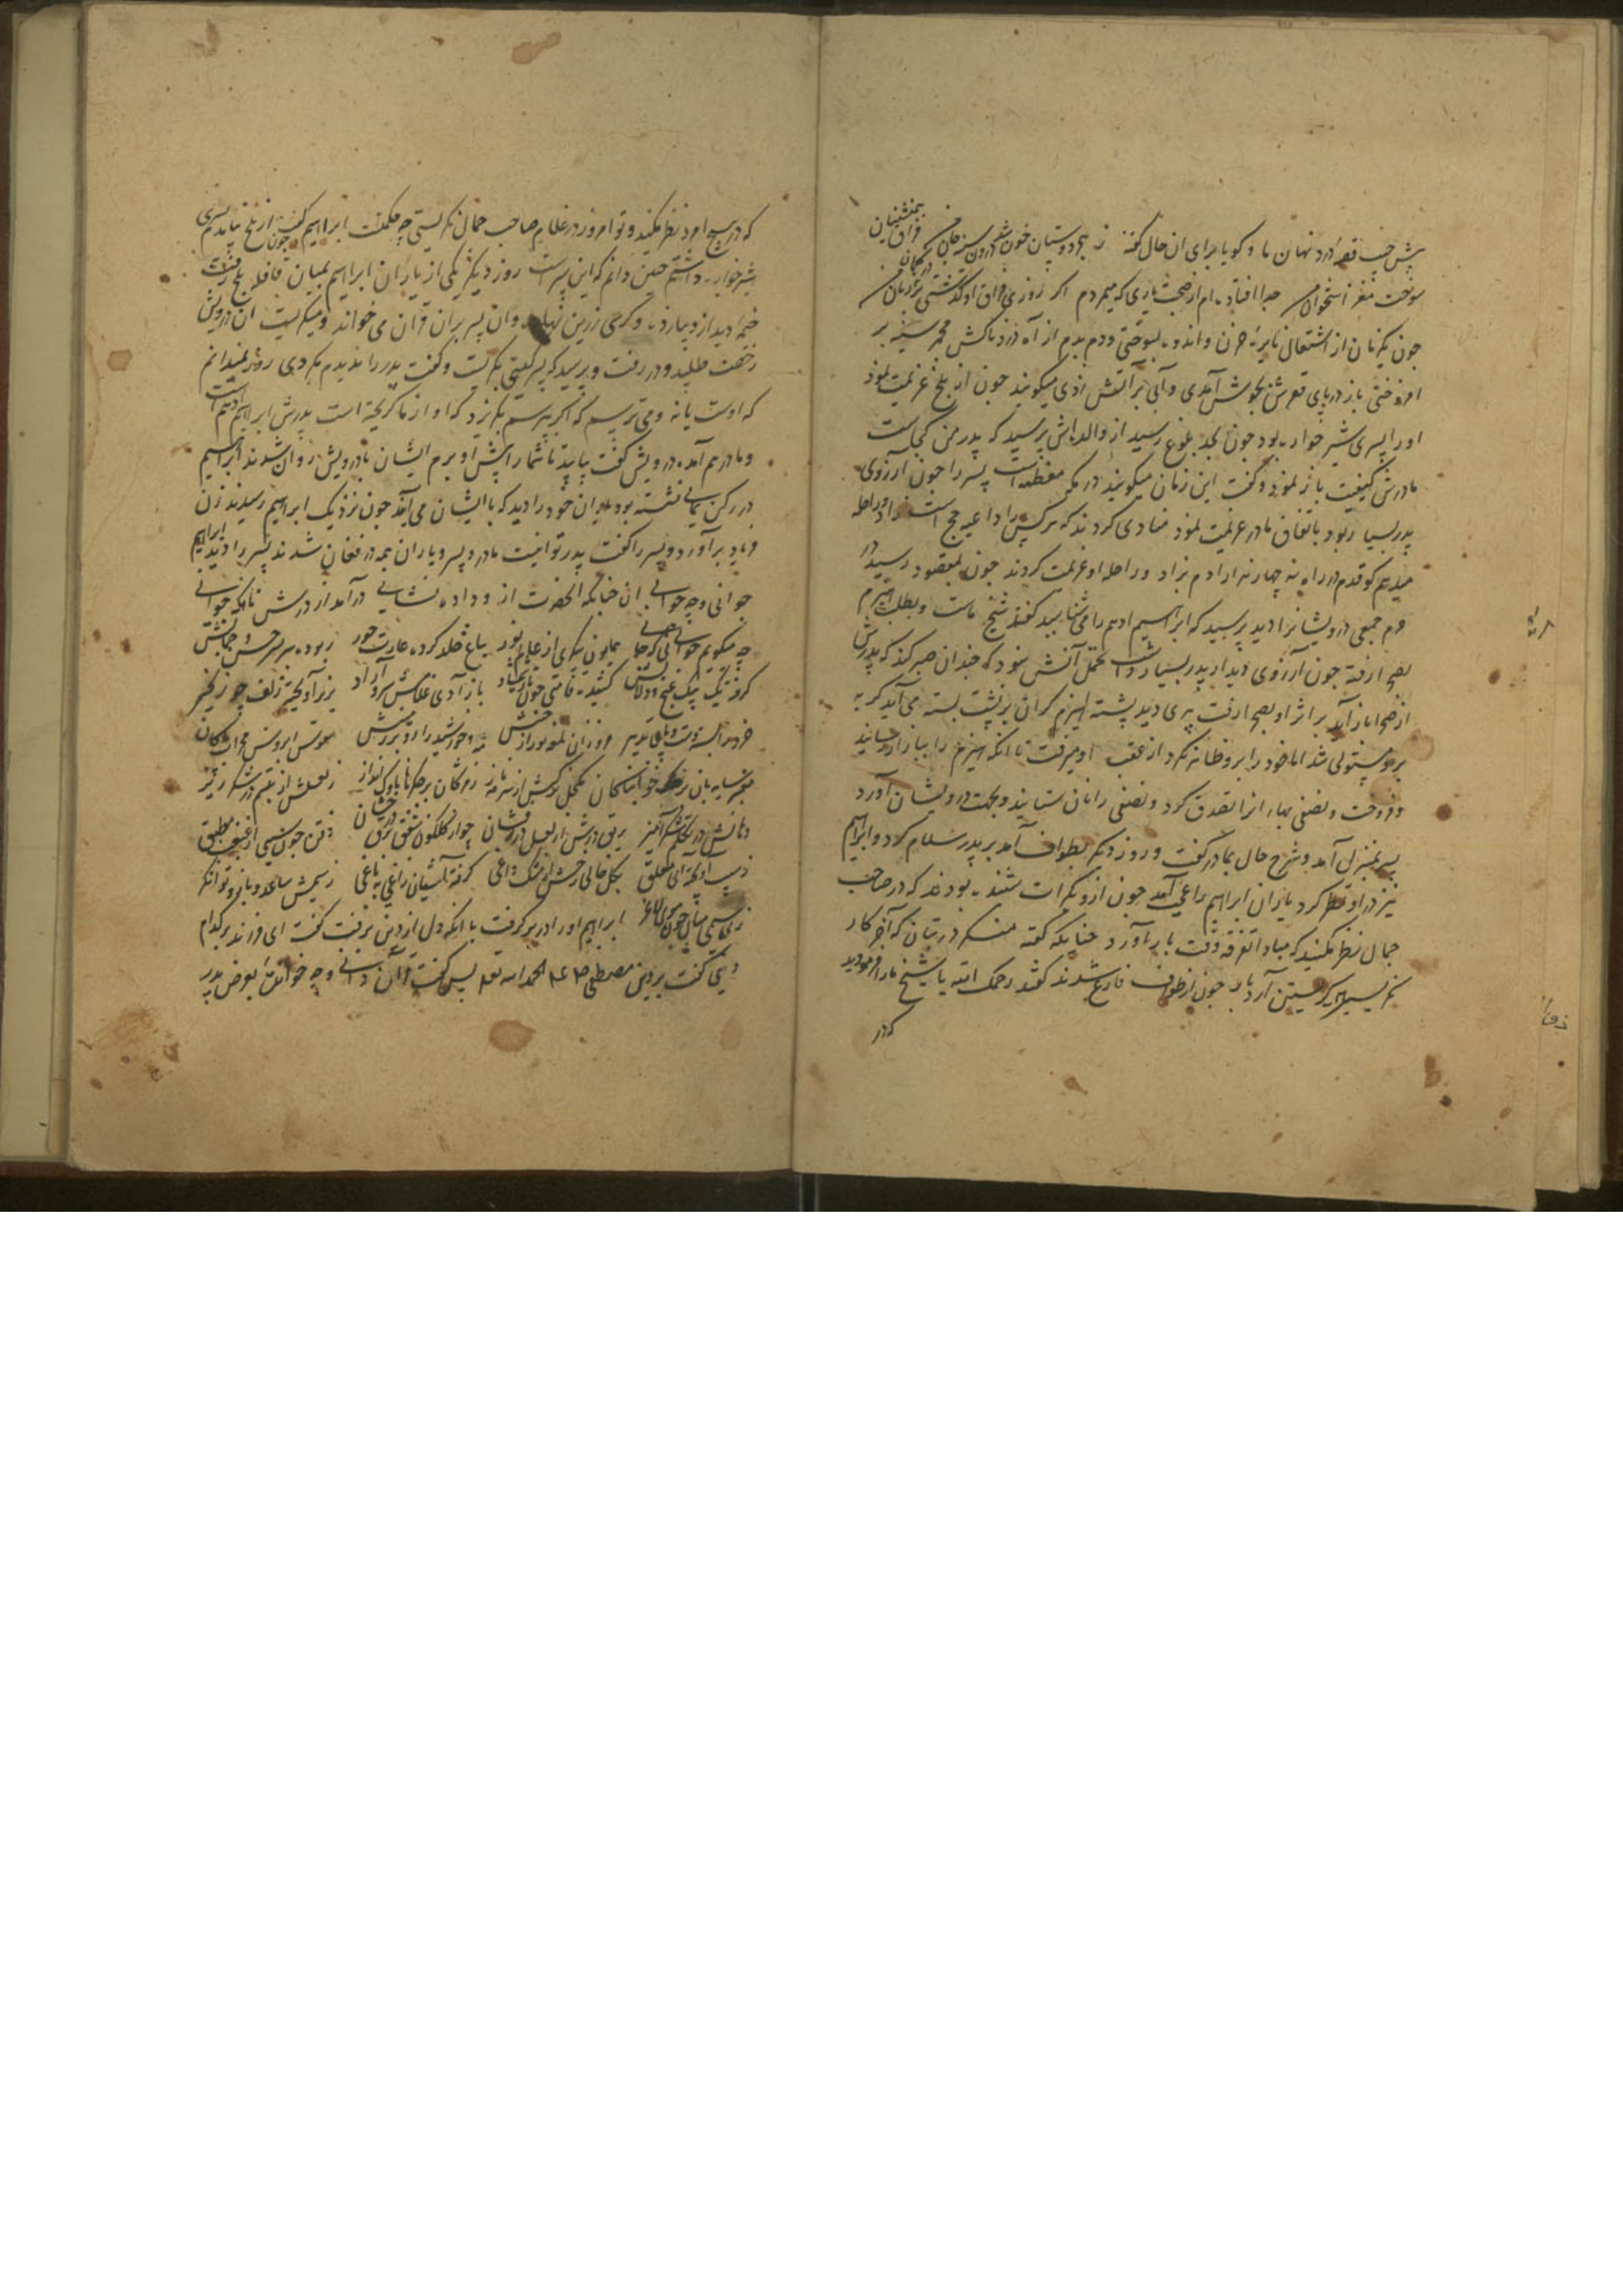 پیش حسب قصه درد نهان ما و کویا برای ان حال گفته ز هجر دوستان خون شد درون سینه جان من
فراق همنشینان
سوخت مغز استخوان من جدا افتاده ام از صحبت یاری که میمردم اکر روزی فراق او کذشتی بر زبان من
چون یکزمان از اشتعال نایره حزن و اندوه بسوختی و دم بدم از آه دردناکش مجمر سینه بر
افروختی باز دریای قعرش بجوش آمدی و آبی بر آتش زدی میکویند چون از بلخ عزیمت نمود
او را پسری شیر خواره بود چون بحد بلوغ رسید از والده اش پرسید که پدر من کجاست
مادرش کیفیت باز نمود و گفت این زمان میکویند در مکه معظمه است پسر را چون آرزوی
پدر بسیار بود باتفاق مادر عزیمت نمود منادی کردند که هر کس را داعیه حج است زاد و راحله
میدهم کو قدم در راه نه چهار هزار آدم بزاد و راحله او عزیمت کردند چون بمقصود رسید در
حرم جمعی درویشانرا دید پرسید که ابراهیم ادهم را می شناسید گفتند شیخ ماست و بطلب هیزم
بصحرا رفته چون آرزوی دیدار پدر بسیار داشت تحمل آتش نبود که چندان صبر کند که پدرش
از صحرا باز آید بر اثر او بصحرا رفت پیری دید پشته هیزم گران بر پشت بسته می آید گریه
برو مستولی شد اما خود را برو ظاهر نکرد از عقب او میرفت تا انکه هیزم را ببازار رسانید
و فروخت و نصفی بهاء انرا تصدق کرد و نصفی را نان ستانید و بجهت درویشان آورد
پسر بمنزل آمد و شرح حال بمادر گفت و روز دیکر بطواف آمد بر پدر سلام کرد و ابراهیم
نیز در او نظر کرد یاران ابراهیم را عجب آمد چون ازو بکرات شنیده بودند که در صاحب
جمال نظر مکنید که مبادا تفرقه وقت بار آورد چنانکه گفته منکر در بتان که آخر کار
نکریستن کریستن آرد بار چون از طواف فارغ شدند گفتند رحمک الله یا شیخ ما را فرمودید
که در
که در هیچ امرد نظر مکنید و تو امروز در غلام صاحب جمال نکریستی چه حکمت ابراهیم گفت چون از بلخ بیامدم پسری
شیر خواره داشتم چنین دانم که این پسر است روز دیکر یکی از یاران ابراهیم بمیان قافله بلخ رفت
خیمه دید از دیبا زده و کرسی زرین نهاده و ان پسر بران قرآن می خواند و میکریست ان درویش
رخصت طلبید و در رفت و پرسید که پسر کیستی بکریست و گفت پدر را ندیدم مکر دی روز نمیدانم
که اوست یا نه و می ترسم که اکر بپرسم بکریزد که او از ما کریخته است پدرش ابراهیم ادهم است
و مادر هم آمده درویش گفت بیایید تا شما را پیش او برم ایشان با درویش روان شدند ابراهیم
در رکن یمانی نشسته بود یاران خود را دید که با ایشان می آیند چون نزدیک ابراهیم رسیدند زن
فریاد برآورد و پسر را گفت پدر تو اینست مادر و پسر و یاران همه در فغان شدند پسر را دید ابراهیم
جوانی و چه جوانی ان چنانکه الحضرت ازو داده نشانی درآمد از درش ناگه جوانی
چه میکویم جوانی نی که جانی همایون پیکری از عالم نور بباغ خلد کرده غارت حور ربوده سربسر حسن و جمالش
کرفته یک بیک غنج و دلالش کشیده قامتی چون تازه شمشاد باز آدی غلامش سرو آزاد بزیر آویخته زلف چو زنجیر
خرد را بسته دست و پای تدبیر فروزان لمعه نور از جبینش مه و خورشید را رو بر زمینش مقوس ابروش محراب پاکان
معنبر سایه بان بر خوابناکان مکحل نرکسش از سرمه ناز زمژگان بر جگرها ناوک انداز ز لعلش از تبسم در شکر ریز
دهانش در تکلم شکر آمیز بریق درش از لعل درفشان چو از گلگون شفق برق درخشان ذقن چون سیبی از غبغب مطبق
زسیب آویخته آبی معلق بکل خالی رخش از مشک داغی کرفته آشیان زاغی بباغی زسیمش ساعد و بازو توانگر
ابراهیم او را در بر کرفت با انکه دل از وی بر نرفت گفت ای فرزند بر کدام
دینی گفت بر دین مصطفی گفت الحمد لله پس گفت قرآن دانی و چه خوانده بعوض پدر